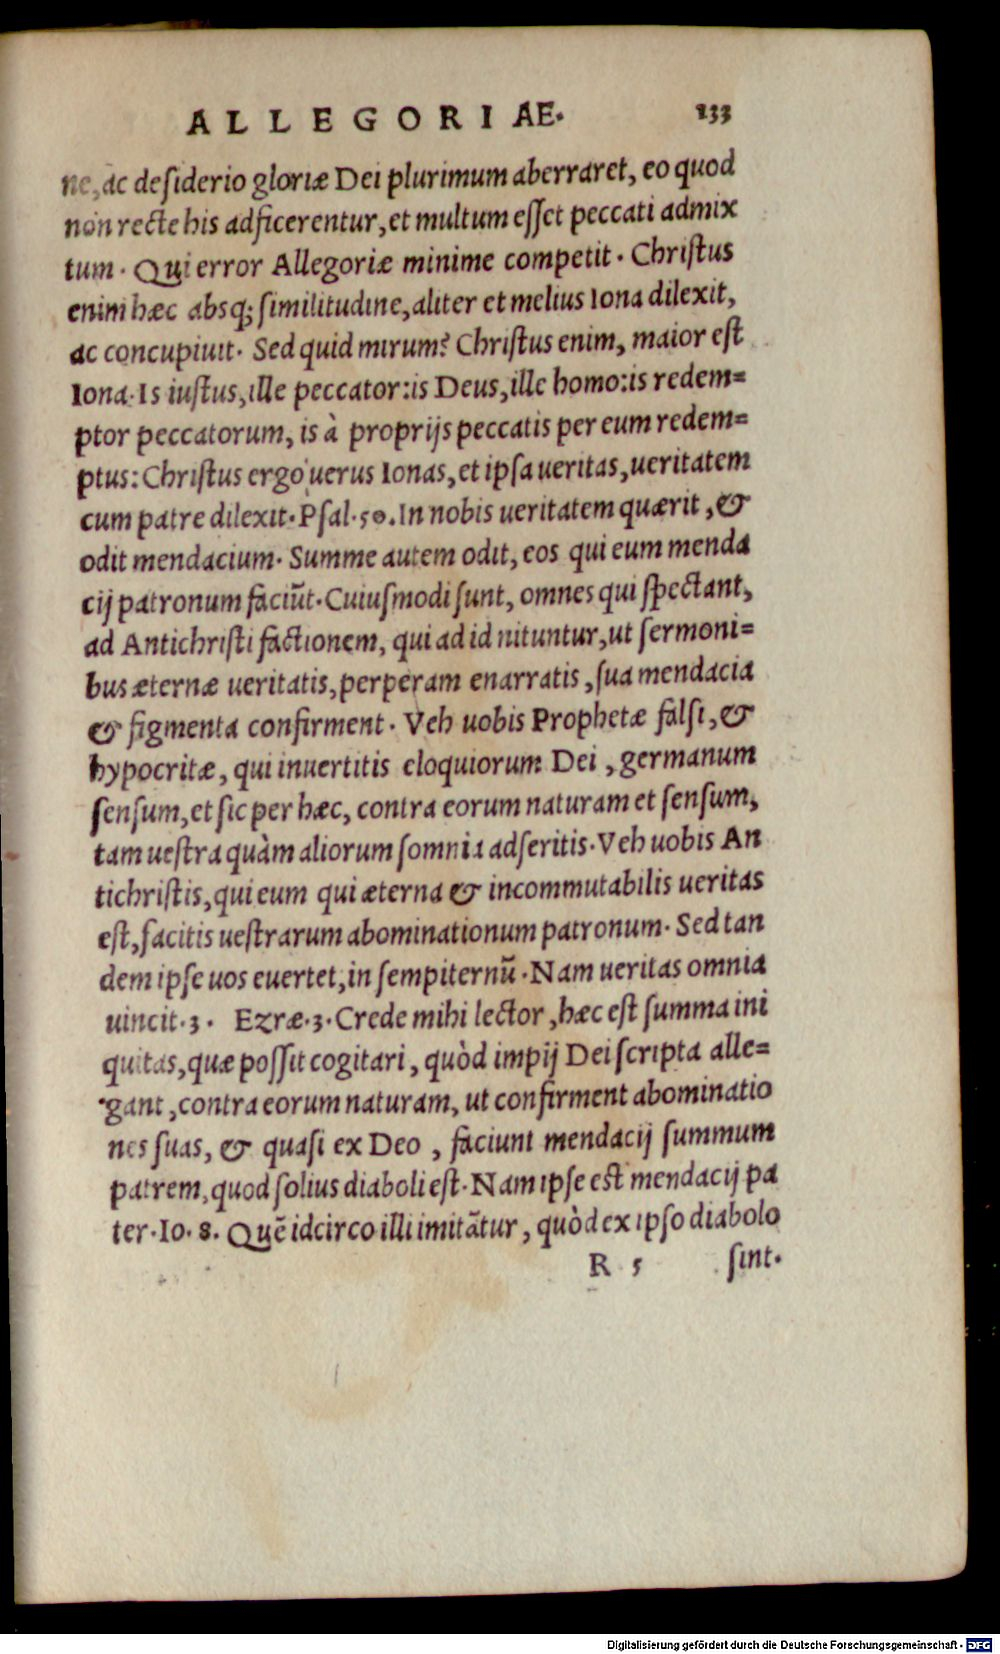 ALLEGORIAE. 133
ne, ac desiderio gloriæ Dei plurimum aberraret, eo quod
non recte his adficerentur, et multum esset peccati admix
tum. Qui error Allegoriæ minime competit. Christus
enim hæc absq; similitudine, aliter et melius Iona dilexit,
ac concupiuit. Sed quid mirum? Christus enim, maior est
Iona. Is iustus, ille peccator: is Deus, ille homo: is redem=
ptor peccatorum, is à proprijs peccatis per eum redem=
ptus: Christus ergo uerus Ionas, et ipsa ueritas, ueritatem
cum patre dilexit. Psal. 50. In nobis ueritatem quærit, &
odit mendacium. Summe autem odit, eos qui eum menda
cij patronum faciūt. Cuiusmodi sunt, omnes qui spectant,
ad Antichristi factionem, qui ad id nituntur, ut sermoni=
bus æternæ ueritatis, perperam enarratis, sua mendacia
& figmenta confirment. Veh uobis Prophetæ falsi, &
hypocritæ, qui inuertitis eloquiorum Dei, germanum
sensum, et sic per hæc, contra eorum naturam et sensum,
tam uestra quàm aliorum somnia adseritis. Veh uobis An
tichristis, qui eum qui æterna & incommutabilis ueritas
est, facitis uestrarum abominationum patronum. Sed tan
dem ipse uos euertet, in sempiternū. Nam ueritas omnia
uincit. 3. Ezræ. 3. Crede mihi lector, hæc est summa ini
quitas, quæ possit cogitari, quòd impij Dei scripta alle=
gant, contra eorum naturam, ut confirment abominatio
nes suas, & quasi ex Deo, faciunt mendacij summum
patrem, quod solius diaboli est. Nam ipse est mendacij pa
ter. Io. 8. Quē idcirco illi imitātur, quòd ex ipso diabolo
R 5 sint.
Digitalisierung gefördert durch die Deutsche Forschungsgemeinschaft - DFG